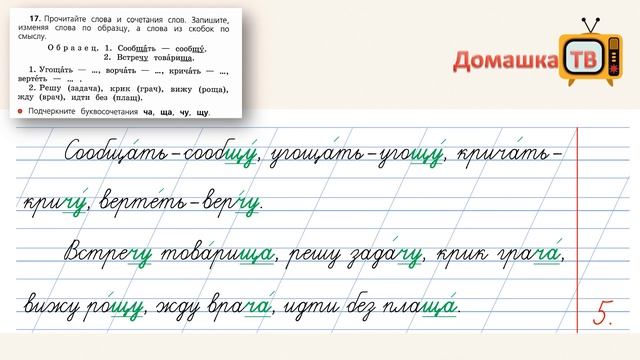 17. Прочитайте слова и сочетания слов. Запишите,
изменяя слова по образцу, а слова из скобок по
смыслу.
Образец. 1. Сообща́ть — сообщу́.
2. Встречу това́рища.
1. Угоща́ть — ..., ворча́ть — ..., крича́ть — ...,
верте́ть — ... .
2. Решу (задача), крик (грач), вижу (роща),
жду (врач), идти без (плащ).
● Подчеркните буквосочетания ча, ща, чу, щу.
Домашка ТВ
Сообща́ть – сообщу́, угоща́ть – угощу́, крича́ть –
кричу́, верте́ть – верчу́.
Встречу това́рища, решу зада́чу, крик грача́,
вижу ро́щу, жду врача́, идти без плаща́.
5.